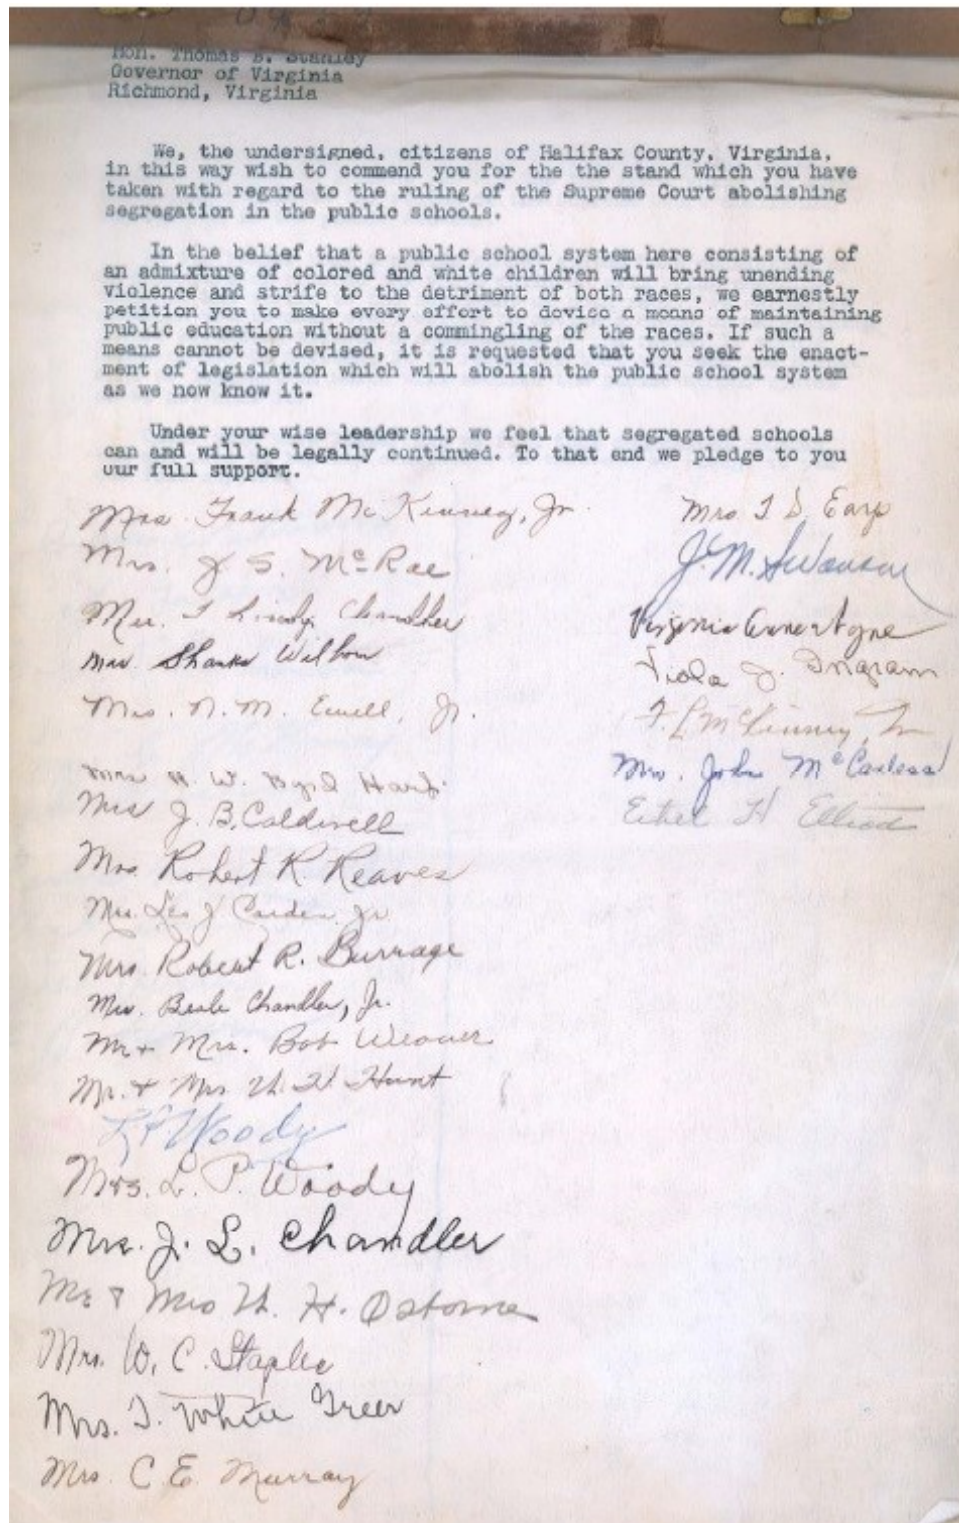 Hon. Thomas B. Stanley
Governor of Virginia
Richmond, Virginia
We, the undersigned, citizens of Halifax County, Virginia,
in this way wish to commend you for the the stand which you have
taken with regard to the ruling of the Supreme Court abolishing
segregation in the public schools.
In the belief that a public school system here consisting of
an admixture of colored and white children will bring unending
violence and strife to the detriment of both races, we earnestly
petition you to make every effort to devise a means of maintaining
public education without a commingling of the races. If such a
means cannot be devised, it is requested that you seek the enact-
ment of legislation which will abolish the public school system
as we now know it.
Under your wise leadership we feel that segregated schools
can and will be legally continued. To that end we pledge to you
our full support.
Mrs. Frank McKinney, Jr.
Mrs. J S. McRae
Mrs. Chandler
Mrs. Shanks Wilborn
Mrs. N. M. Ewell, Jr.
Mrs H. W. Byrd
Mrs J. B. Caldwell
Mrs. Robert R. Reaves
Mrs. Jr.
Mrs. Robert R. Burrage
Mrs. Beale Chandler, Jr.
Mr + Mrs. Bob Weaver
Mr. & Mrs. Hunt
L P Woody
Mrs. L. P. Woody
Mrs. J. L. Chandler
Mr & Mrs W. H. Osborne
Mrs. W. C. Staples
Mrs. T. White Greer
Mrs. C. E. Murray
Mrs T D Earp
J. M. Swanson
Virginia Anne
Viola J. Ingram
F. L. McKinney, Jr
Mrs. John
Ethel H Elliott